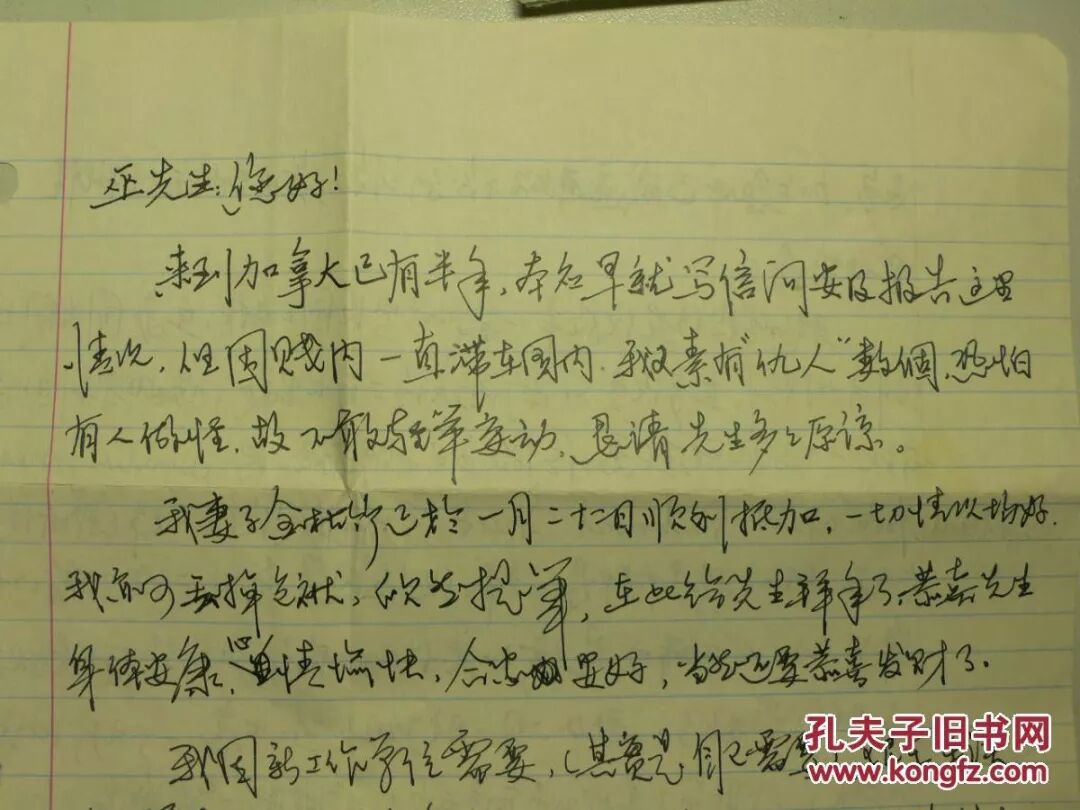 巫先生:您好!
来到加拿大已有半年,本应早就写信问安及报告这里
情况,但因贱内一直滞在国内,我又素有“仇人”数個,恐怕
有人做怪,故不敢轻举妄动,恳请先生多多原谅。
我妻子金 已於一月二十二日顺利抵加,一切情况均好.
我亦可丢掉包袱,欣然提筆,在此给先生拜年了,恭喜先生
身体安康,心情愉快,合家安好,当然还要恭喜发财了.
我因新工作单位需要,(其实是自己需要
孔夫子旧书网
www.kongfz.com